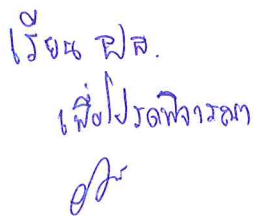 เรียน ฝส.
เพื่อโปรดพิจารณา